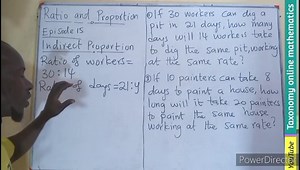 Ratio and Proportion
Episode 15
Indirect Proportion
Ratio of workers=
30:14
Ratio of days=21:y
① If 30 workers can dig a
pit in 21 days, how many
days will 14 workers take
to dig the same pit, working
at the same rate?
② If 10 painters can take 8
days to paint a house, how
long will it take 20 painters
to paint the same house
working at the same rate?
Taxonomy online mathematics
YouTube
PowerDirector